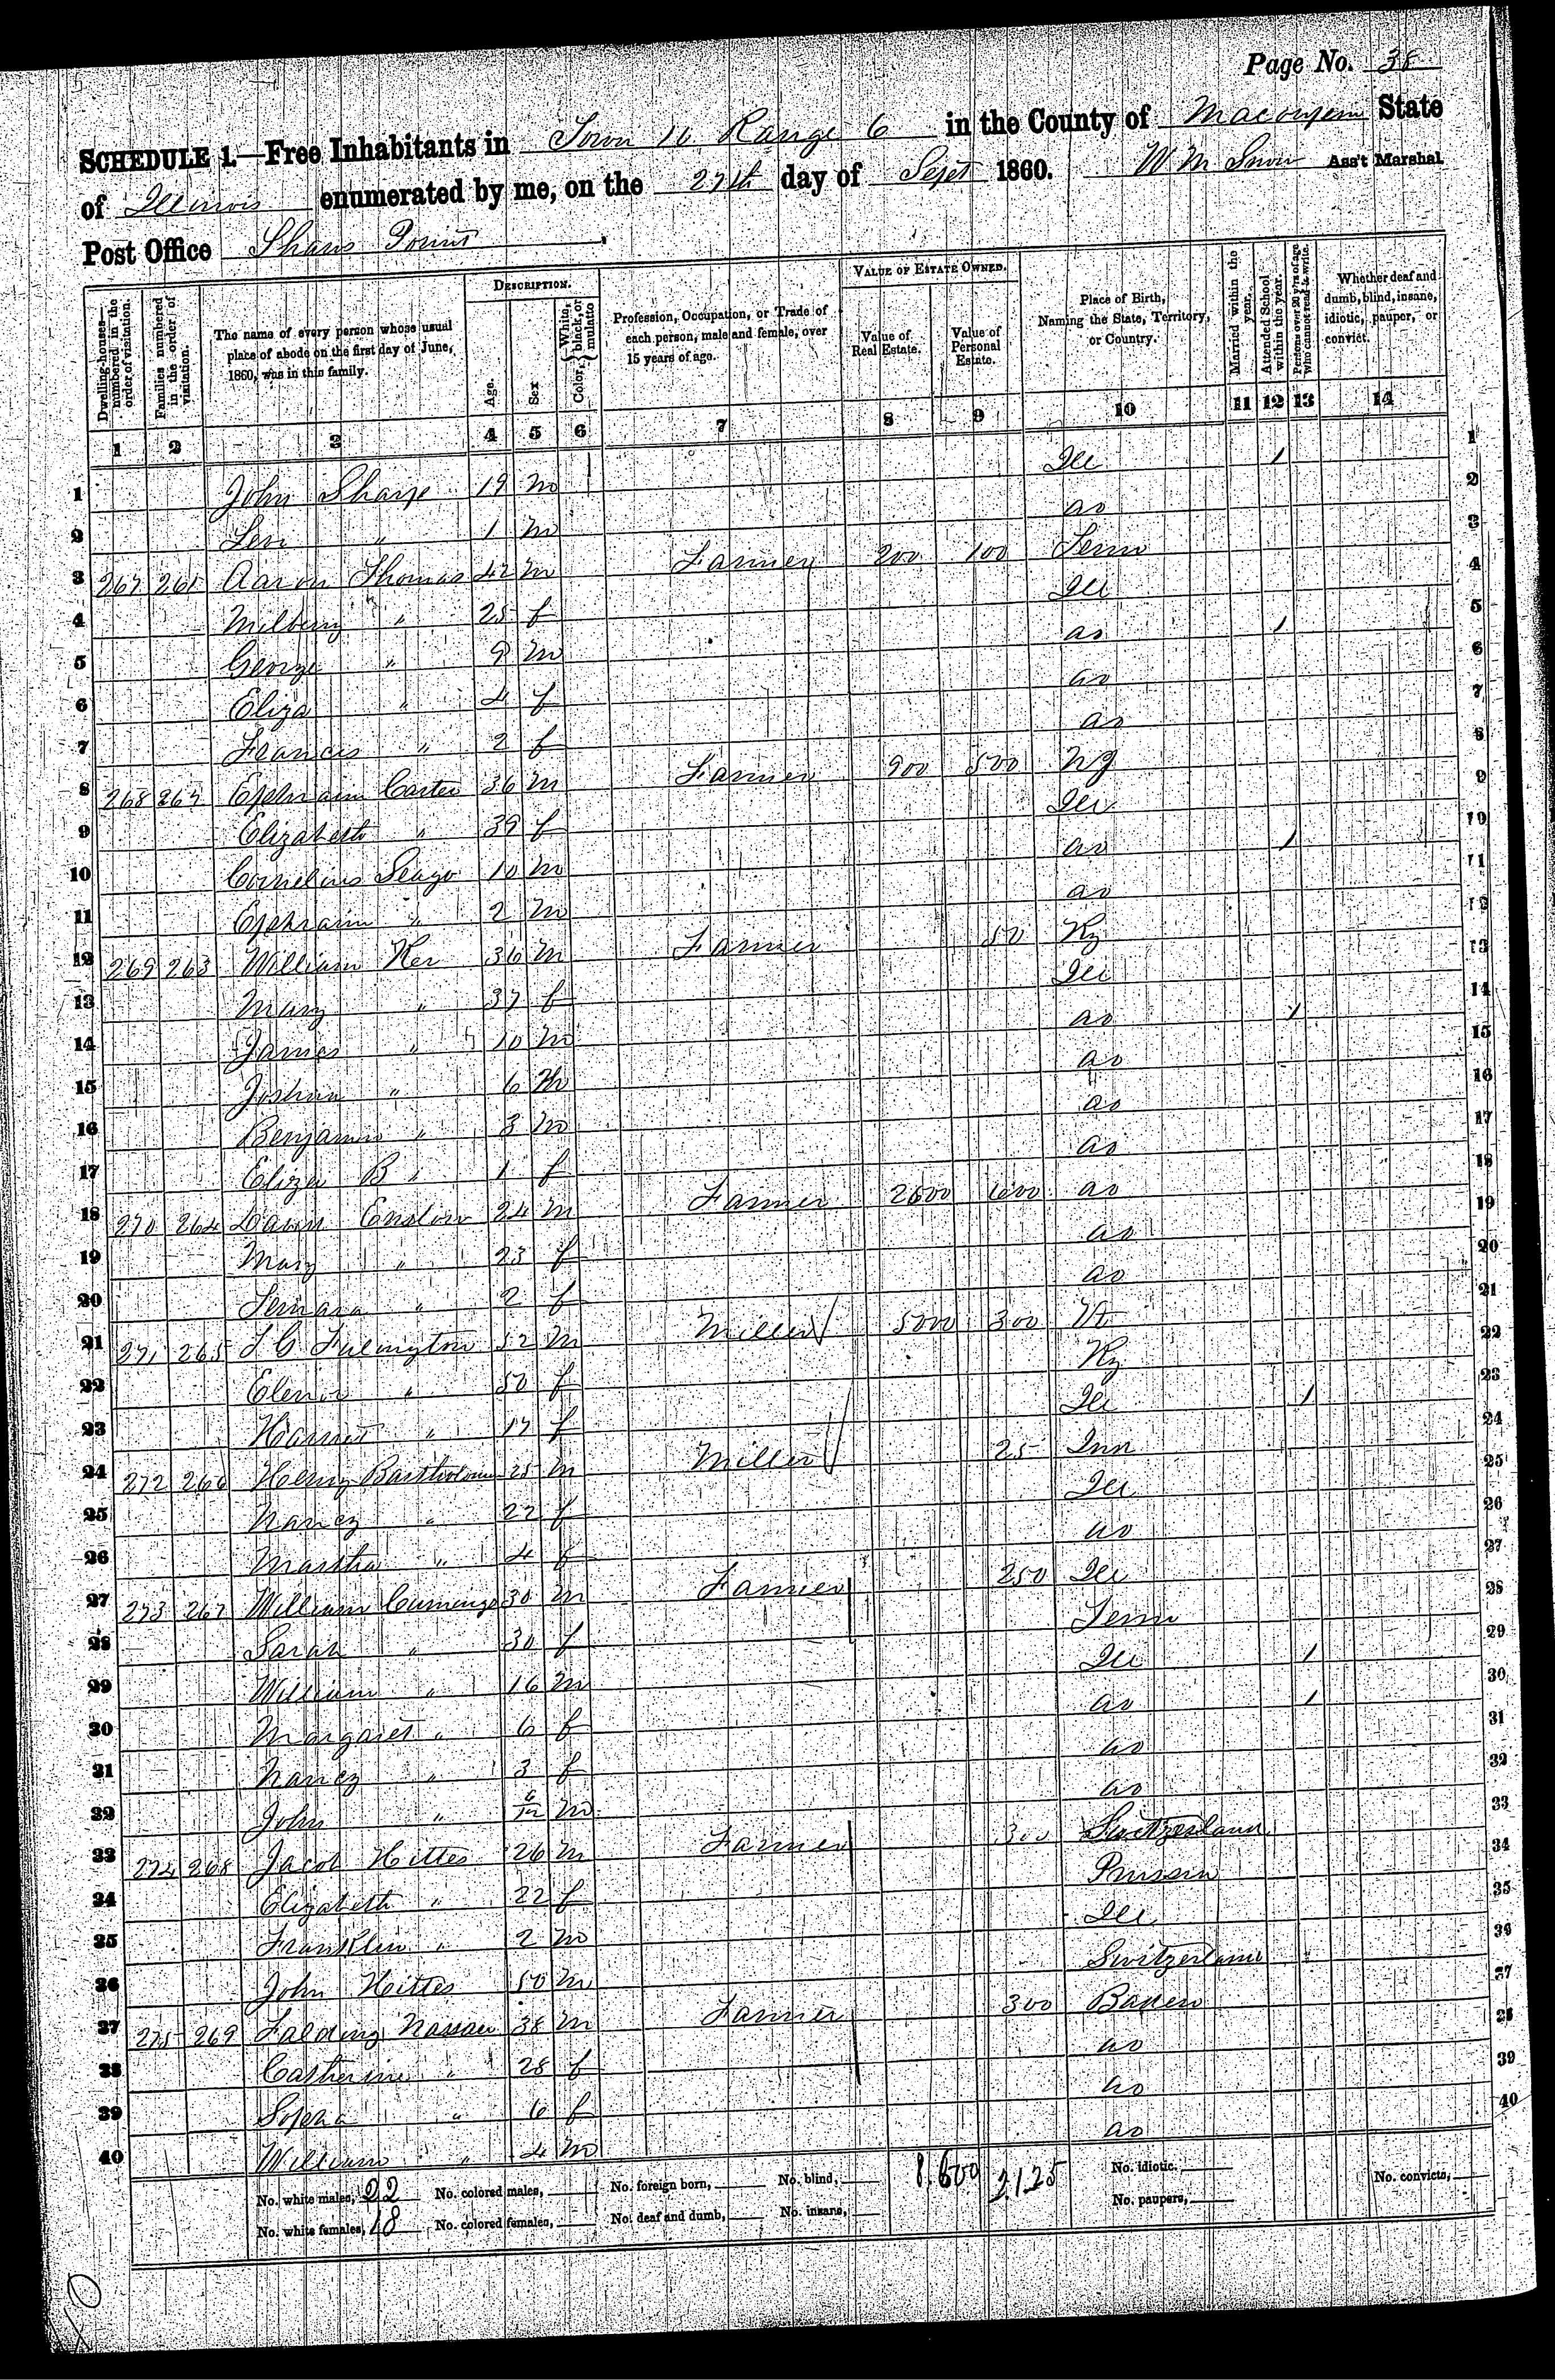 Page No. 38
SCHEDULE 1.—Free Inhabitants in Town 10 Range 6 in the County of Macoupin State
of Illinois enumerated by me, on the 27th day of Sept 1860. W M Snow Ass't Marshal
Post Office Shaws Point
Dwelling-houses—numbered in the order of visitation.
Families numbered in the order of visitation.
The name of every person whose usual place of abode on the first day of June, 1860, was in this family.
DESCRIPTION.
Age.
Sex
Color, White, black, or mulatto
Profession, Occupation, or Trade of each person, male and female, over 15 years of age.
VALUE OF ESTATE OWNED.
Value of Real Estate.
Value of Personal Estate.
Place of Birth, Naming the State, Territory, or Country.
Married within the year.
Attended School within the year.
Persons over 20 y'rs of age who cannot read & write.
Whether deaf and dumb, blind, insane, idiotic, pauper, or convict.
1 2 3 4 5 6 7 8 9 10 11 12 13 14
1 John Sharp 19 m Ill / 1
2 Levi " 1 m do 2
3 267 261 Aaron Thomas 42 m Farmer 200 100 Tenn 3
4 Milberry " 25 f Ill 4
5 George " 9 m do / 5
6 Eliza " 4 f do 6
7 Francis " 2 f do 7
8 268 262 Ephraim Carter 36 m Farmer 900 500 NJ 8
9 Elizabeth " 39 f Ill 9
10 Cornelius Seago 10 m do / 10
11 Ephraim " 2 m do 11
12 269 263 William Ker 36 m Farmer 50 Ky 12
13 Mary " 37 f Ill 13
14 James " 10 m do / 14
15 Joshua " 6 m do 15
16 Benjamin " 3 m do 16
17 Eliza B " 1 f do 17
18 270 264 Enslow 24 m Farmer 2500 600 do 18
19 Mary " 23 f do 19
20 " 2 f do 20
21 271 265 52 m Miller 5000 300 Vt 21
22 Elenor " 50 f Ky 22
23 Harriet " 17 f Ill / 23
24 272 266 Henry Bartholomew 25 m Miller 25 Inn 24
25 Nancy " 22 f Ill 25
26 Martha " 4 f do 26
27 273 267 William Cumings 30 m Farmer 250 Ill 27
28 Sarah " 30 f Tenn 28
29 William " 16 m Ill / 29
30 Margaret " 6 f do / 30
31 Nancy " 3 f do 31
32 John " 6/12 m do 32
33 274 268 Jacob Hittes 26 m Farmer 300 Switzerland 33
34 Elizabeth " 22 f Prussia 34
35 Franklin " 2 m Ill 35
36 John Hittes 50 m Switzerland 36
37 275 269 Nassau 38 m Farmer 300 Baden 37
38 Catherine " 28 f do 38
39 Sopha " 6 f do 39
40 William " 4 m do 40
No. white males, 22 No. colored males, No. foreign born, No. blind, 8.600 2125 No. idiotic. No. convicts,
No. white females, 18 No. colored females, No. deaf and dumb, No. insane, No. paupers,